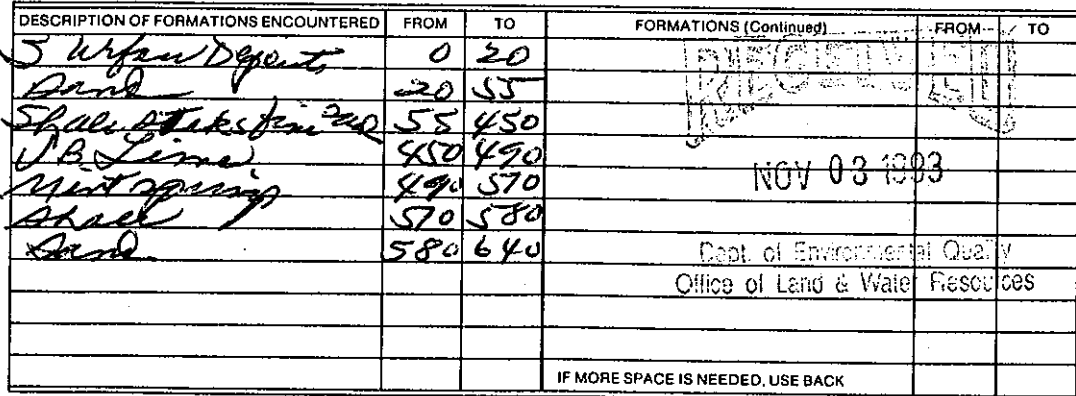 DESCRIPTION OF FORMATIONS ENCOUNTERED FROM TO FORMATIONS (Continued) FROM TO
Surface Deposits 0 20
Sand 20 55
Shale stks fine sand 55 450
V.B. Lime 450 490
Mint springs 490 570
Shale 570 580
Sand 580 640
RECEIVED
NOV 03 1993
Dept. of Environmental Quality
Office of Land & Water Resources
IF MORE SPACE IS NEEDED, USE BACK